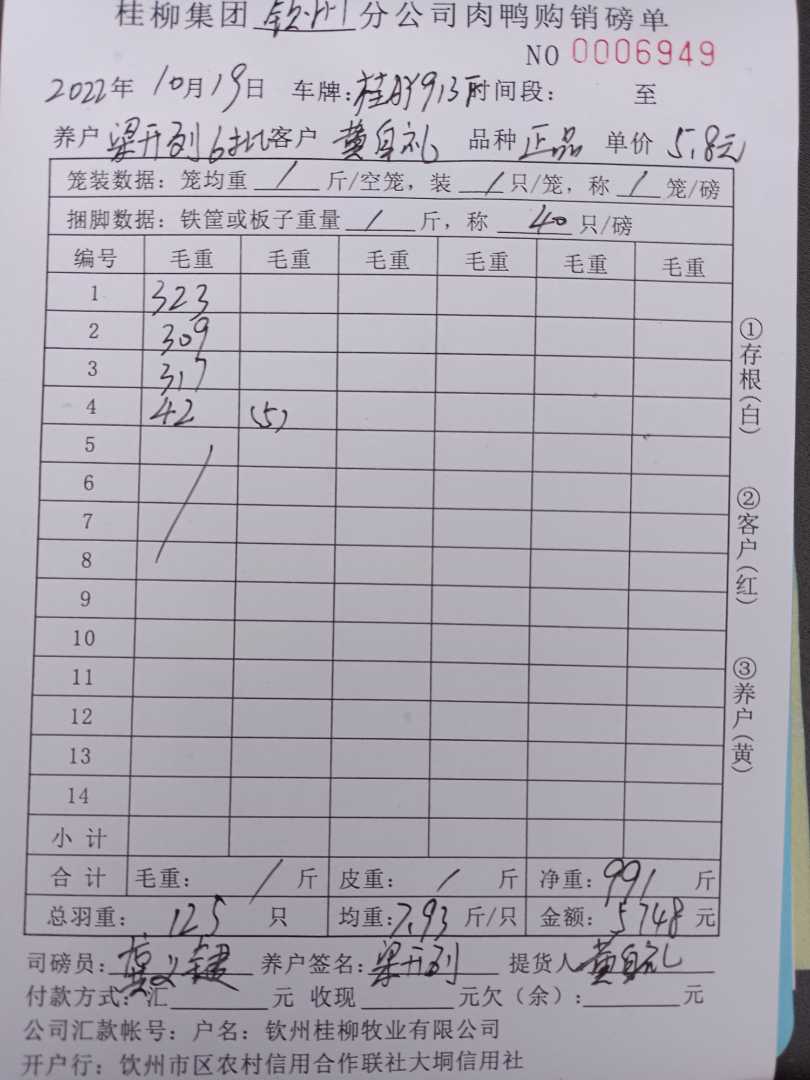 桂柳集团 钦州 分公司肉鸭购销磅单
NO 0006949
2022年 10月19日 车牌:桂 913 时间段: 至
养户 梁开列6批 客户 黄自礼 品种 正品 单价 5.8元
笼装数据: 笼均重 / 斤/空笼, 装 / 只/笼, 称 / 笼/磅
捆脚数据: 铁筐或板子重量 / 斤, 称 40 只/磅
编号 毛重 毛重 毛重 毛重 毛重 毛重
1 323
2 309
3 317
4 42 (5)
5
6
7
8
9
10
11
12
13
14
小计
合计 毛重: / 斤 皮重: / 斤 净重: 991 斤
总羽重: 125 只 均重: 7.93 斤/只 金额: 5748 元
司磅员: 养户签名: 梁开列 提货人 黄自礼
付款方式: 汇 元 收现 元欠(余): 元
公司汇款帐号: 户名: 钦州桂柳牧业有限公司
开户行: 钦州市区农村信用合作联社大垌信用社
①存根(白)
②客户(红)
③养户(黄)